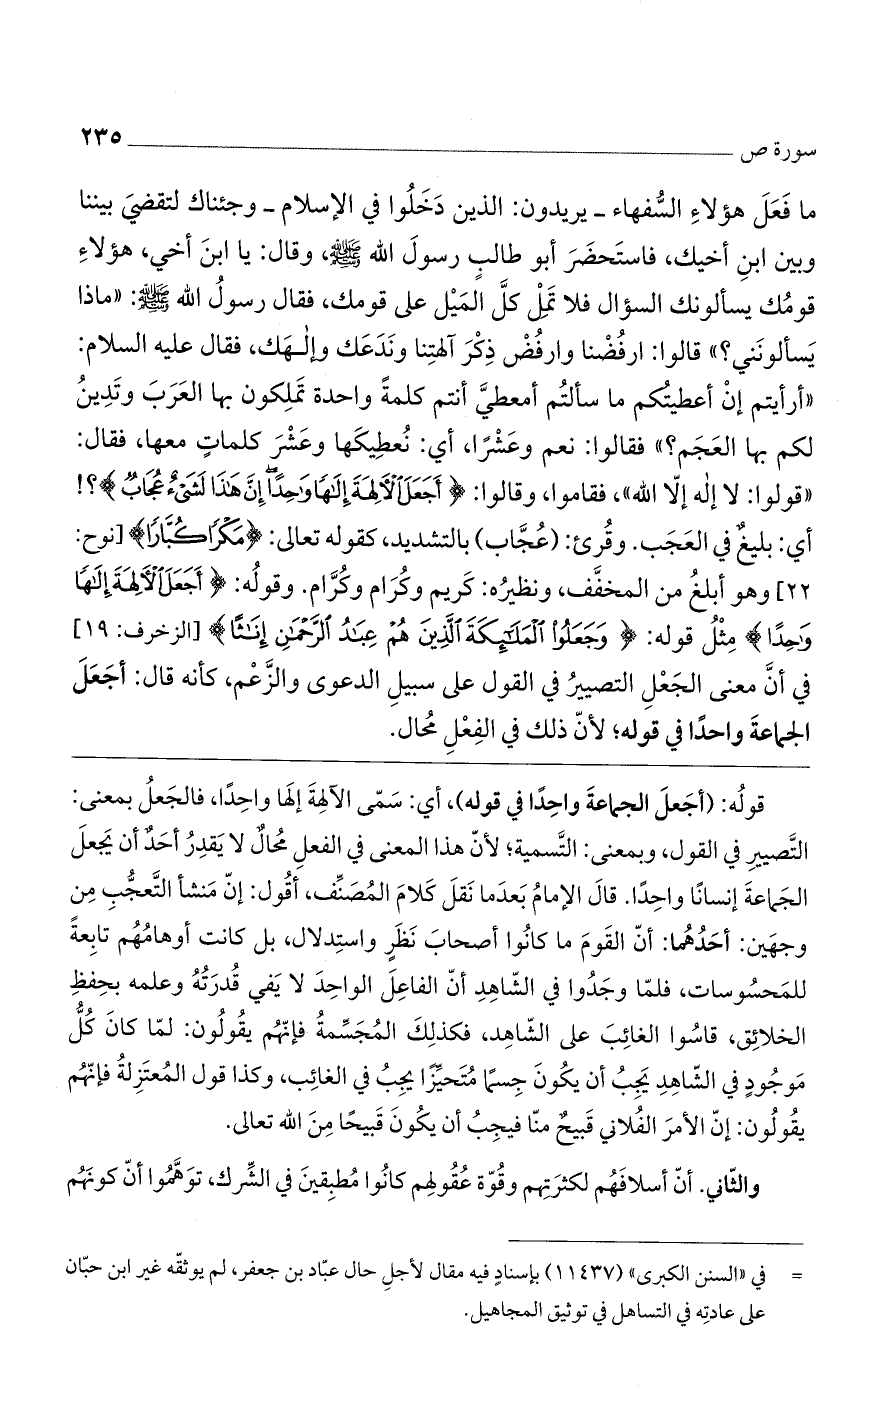 سورة ص ـــــــ ٢٣٥
ما فَعَلَ هؤلاءِ السُّفهاء ـ يريدون: الذين دَخَلُوا في الإسلام ـ وجئناك لتقضيَ بيننا
وبين ابنِ أخيك، فاستَحضَرَ أبو طالبٍ رسولَ الله ﷺ، وقال: يا ابنَ أخي، هؤلاءِ
قومُك يسألونك السؤال فلا تَمِلْ كلَّ المَيْل على قومك، فقال رسولُ الله ﷺ: «ماذا
يَسألونَني؟» قالوا: ارفُضْنا وارفُضْ ذِكْرَ آلهتِنا ونَدَعَك وإلـٰهَك، فقال عليه السلام:
«أرأيتم إنْ أعطيتُكم ما سألتُم أمعطيَّ أنتم كلمةً واحدة تَملِكون بها العَرَبَ وتَدِينُ
لكم بها العَجَم؟» فقالوا: نعم وعَشْرًا، أي: نُعطِيكَها وعَشْرَ كلماتٍ معها، فقال:
«قولوا: لا إله إلّا الله»، فقاموا، وقالوا: ﴿أَجَعَلَ ٱلْآلِهَةَ إِلَٰهًا وَٰحِدًا ۖ إِنَّ هَٰذَا لَشَىْءٌ عُجَابٌ﴾؟!
أي: بليغٌ في العَجَب. وقُرئ: (عُجَّاب) بالتشديد، كقوله تعالى: ﴿مَكْرًا كُبَّارًا﴾ [نوح:
٢٢] وهو أبلغُ من المخفَّف، ونظيرُه: كَريم وكُرَام وكُرَّام. وقولُه: ﴿أَجَعَلَ ٱلْآلِهَةَ إِلَٰهًا
وَٰحِدًا﴾ مِثْلُ قوله: ﴿وَجَعَلُوا۟ ٱلْمَلَٰٓئِكَةَ ٱلَّذِينَ هُمْ عِبَٰدُ ٱلرَّحْمَٰنِ إِنَٰثًا﴾ [الزخرف: ١٩]
في أنَّ معنى الجَعْلِ التصييرُ في القول على سبيلِ الدعوى والزَّعْم، كأنه قال: أجَعَلَ
الجماعةَ واحدًا في قوله؛ لأنّ ذلك في الفِعْلِ مُحال.
قولُه: (أجَعلَ الجماعةَ واحِدًا في قوله)، أي: سَمّى الآلهةَ إلهًا واحِدًا، فالجَعلُ بمعنى:
التَّصييرِ في القول، وبمعنى: التَّسمية؛ لأنّ هذا المعنى في الفعلِ مُحالٌ لا يَقدِرُ أحَدٌ أن يَجعلَ
الجَماعةَ إنسانًا واحِدًا. قالَ الإمامُ بَعدَما نَقلَ كَلامَ المُصَنِّف، أقُول: إنّ مَنشأ التَّعجُّبِ مِن
وجهَين: أحَدُهُما: أنّ القَومَ ما كانُوا أصحابَ نَظَرٍ واستِدلال، بل كانت أوهامُهُم تابِعةً
للمَحسُوسات، فلمّا وجَدُوا في الشّاهِدِ أنّ الفاعِلَ الواحِدَ لا يَفي قُدرَتُهُ وعلمه بحِفظِ
الخلائِق، قاسُوا الغائِبَ على الشّاهِد، فكذلِكَ المُجَسِّمةُ فإنّهُم يقُولُون: لمّا كانَ كُلُّ
مَوجُودٍ في الشّاهِدِ يجِبُ أن يكُونَ جِسمًا مُتَحيِّزًا يجِبُ في الغائِب، وكذا قول المُعتَزِلةُ فإنّهُم
يقُولُون: إنّ الأمرَ الفُلاني قَبيحٌ منّا فيجِبُ أن يكُونَ قَبيحًا مِنَ الله تعالى.
والثّاني. أنّ أسلافَهُم لكثرَتِهِم وقُوّة عقُولهِم كانُوا مُطبِقينَ في الشِّرك، توهَّمُوا أنّ كونَهُم
= في «السنن الكبرى» (١١٤٣٧) بإسنادٍ فيه مقال لأجلِ حال عبّاد بن جعفر، لم يوثقّه غير ابن حبّان
على عادتِه في التساهل في توثيق المجاهيل.